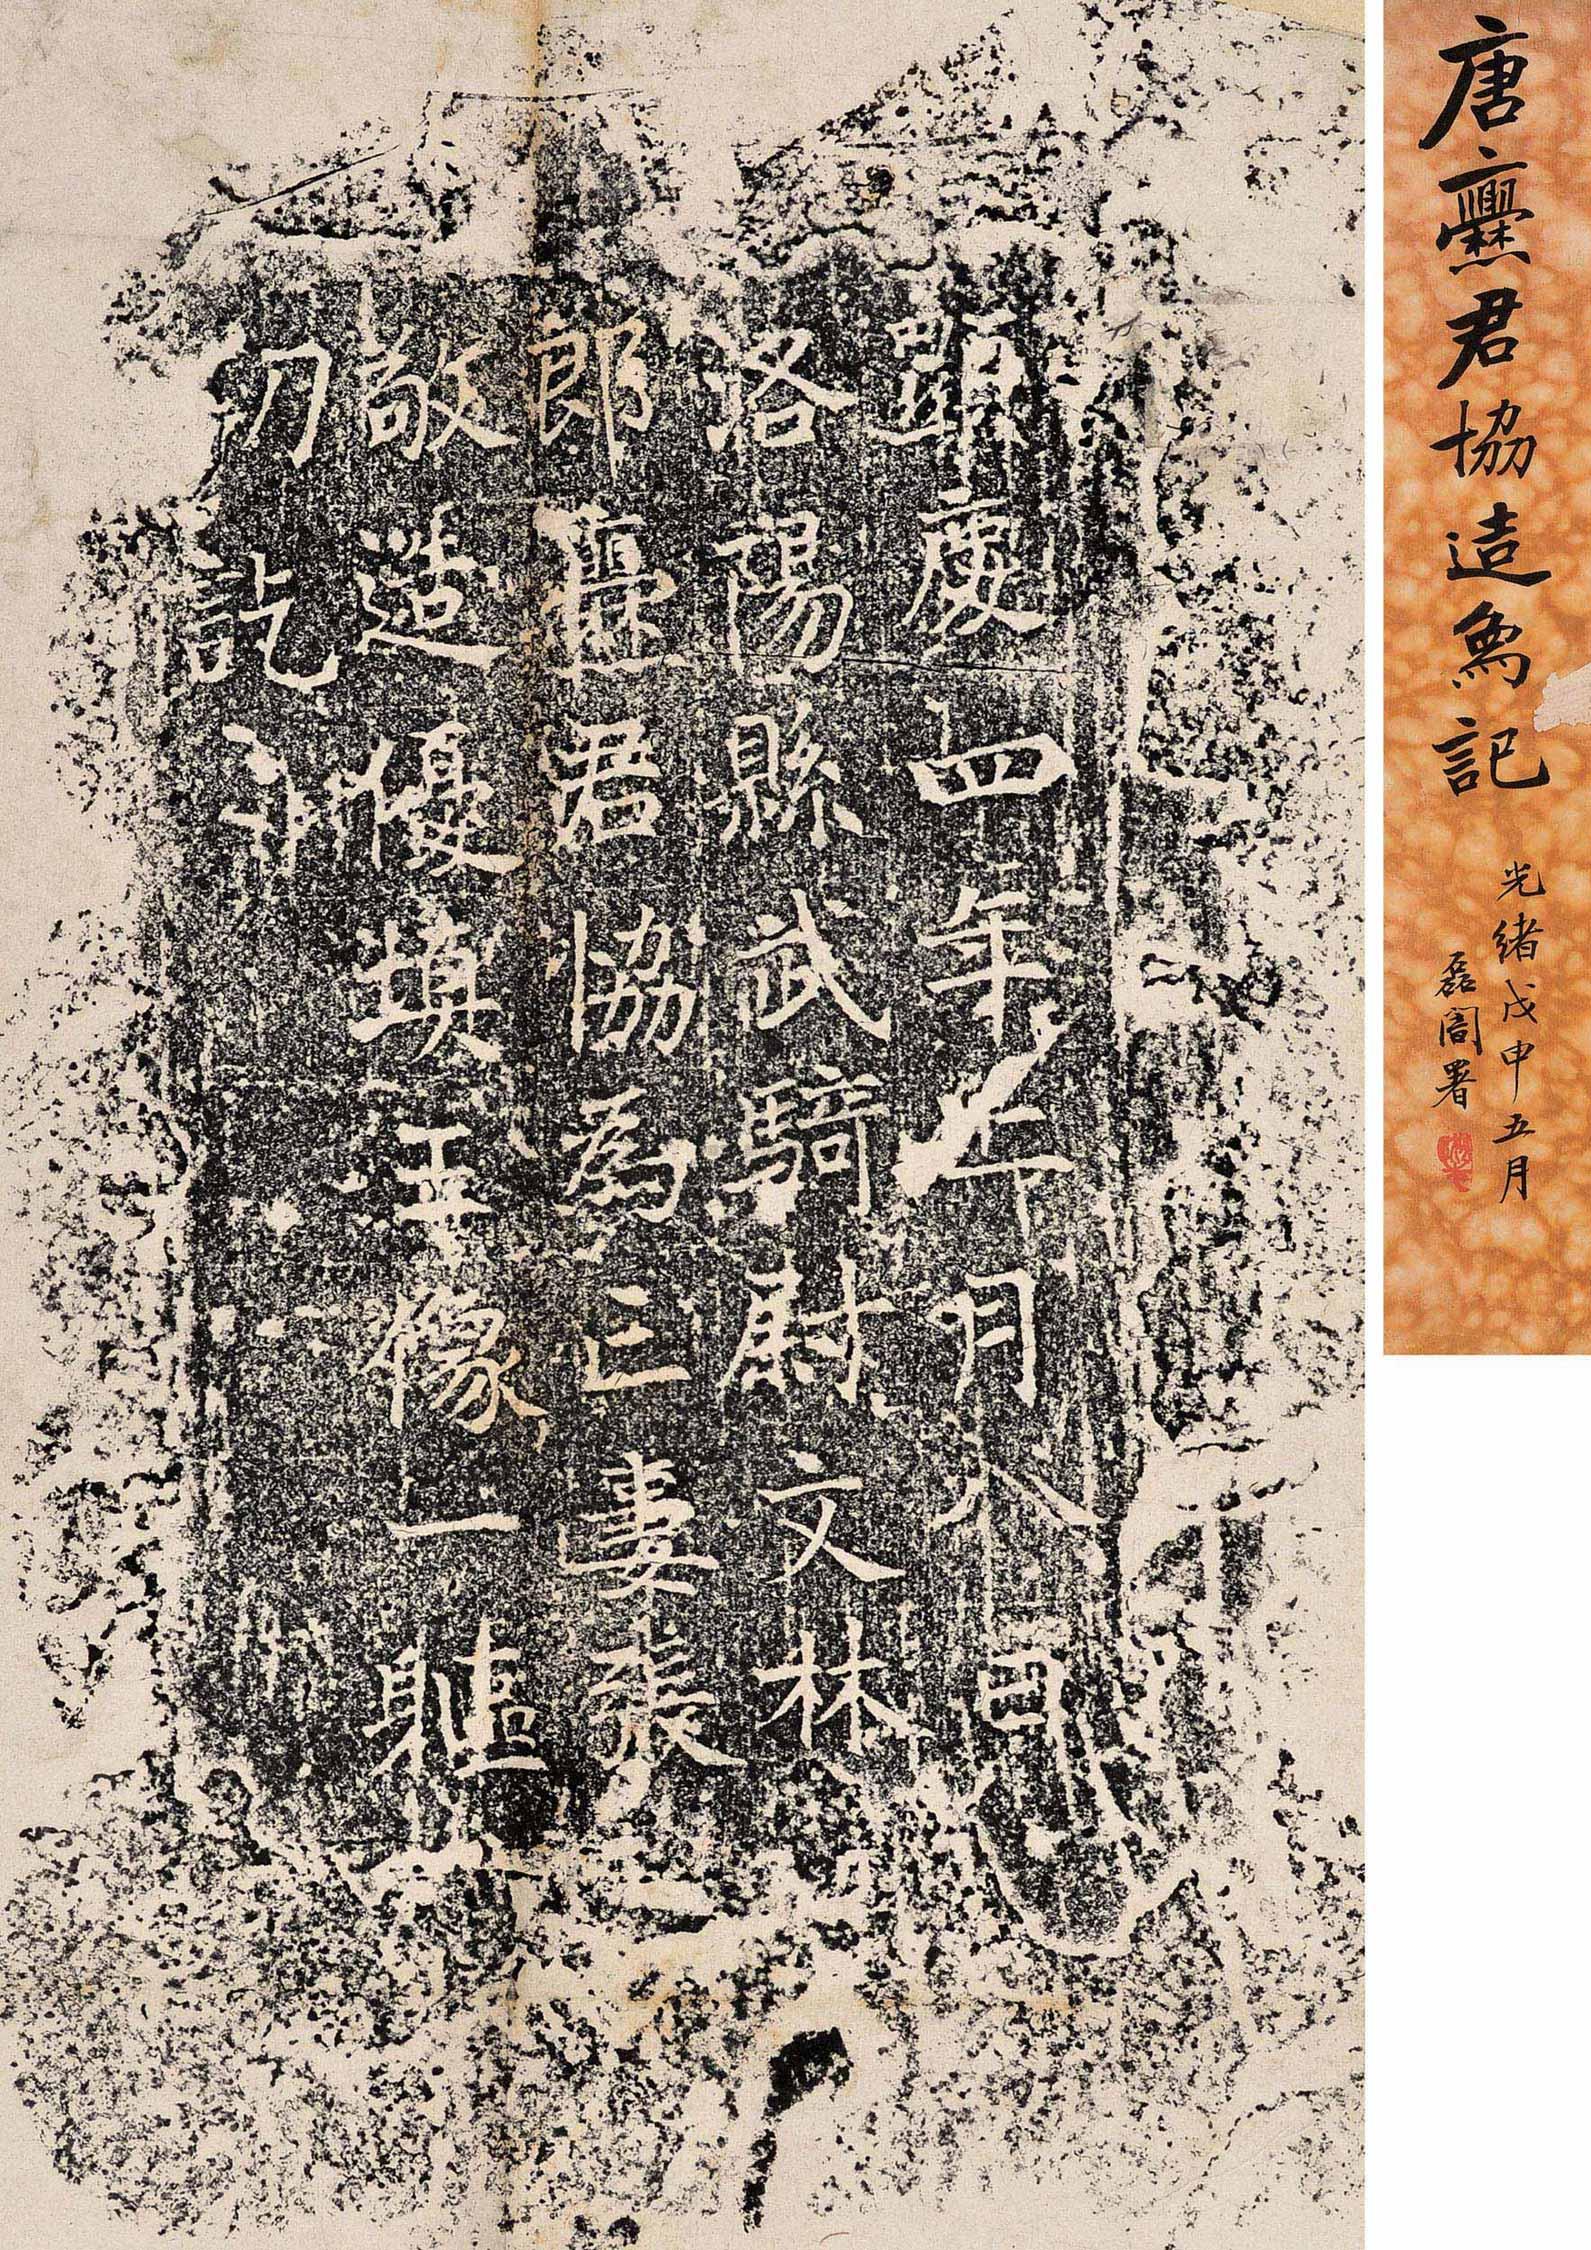 唐爨君協造象記
光緒戊申五月
磊闇署
顯慶四年七月八日
洛陽縣武騎尉文林
郎爨君協為亡妻張
敬造優填王像一軀
切訖